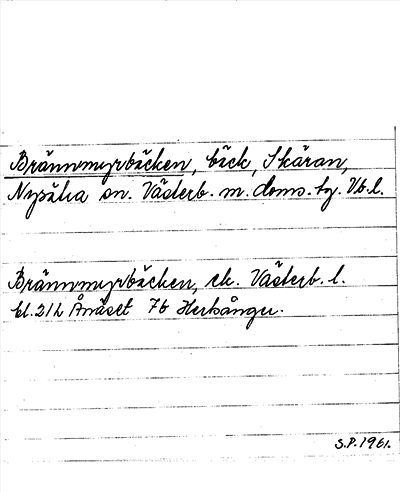 Brännmyrbäcken, bäck, Skäran,
Nysätra sn. Västerb. m. doms. tg. Vb. l.
Brännmyrbäcken, ek. Västerb. l.
bl. 212 Ånäset 7b Herrånger.
S.P. 1961.